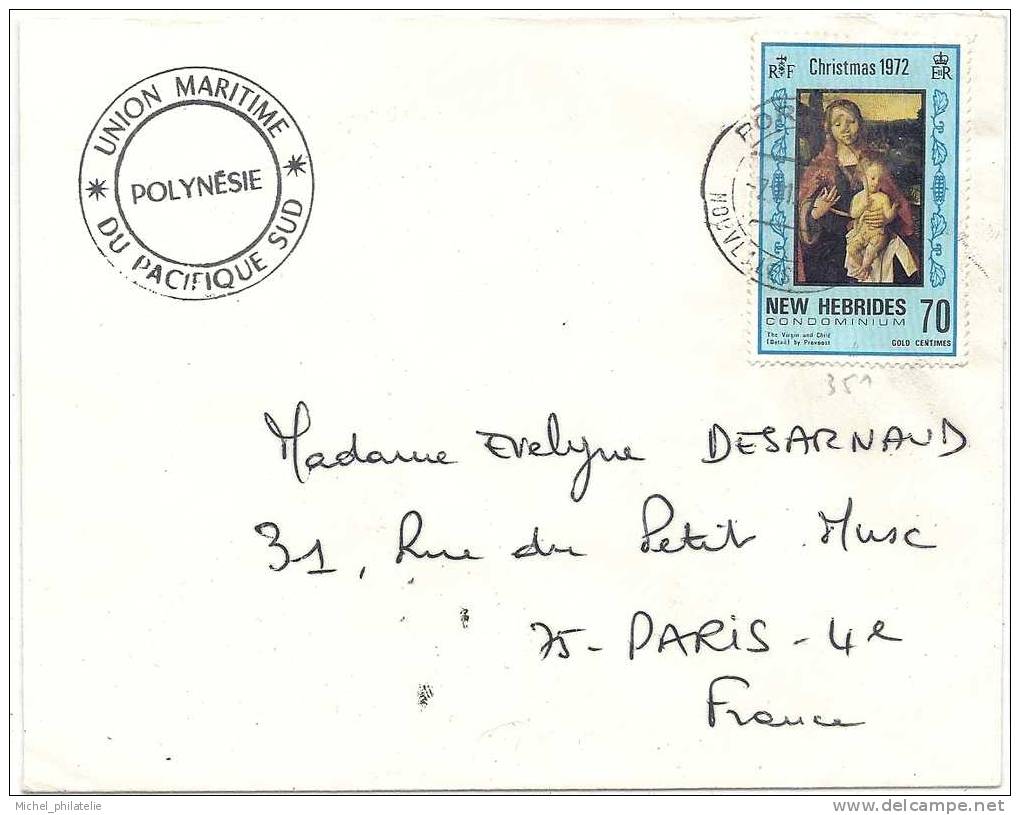 UNION MARITIME
POLYNÉSIE
DU PACIFIQUE SUD
RF Christmas 1972 EIIR
NEW HEBRIDES 70
CONDOMINIUM
The Virgin and Child
(Detail) by Provoost
GOLD CENTIMES
351
Madame Evelyne DESARNAUD
31, Rue du Petit Musc
75 - PARIS - 4e
France
Michel_philatelie
www.delcampe.net